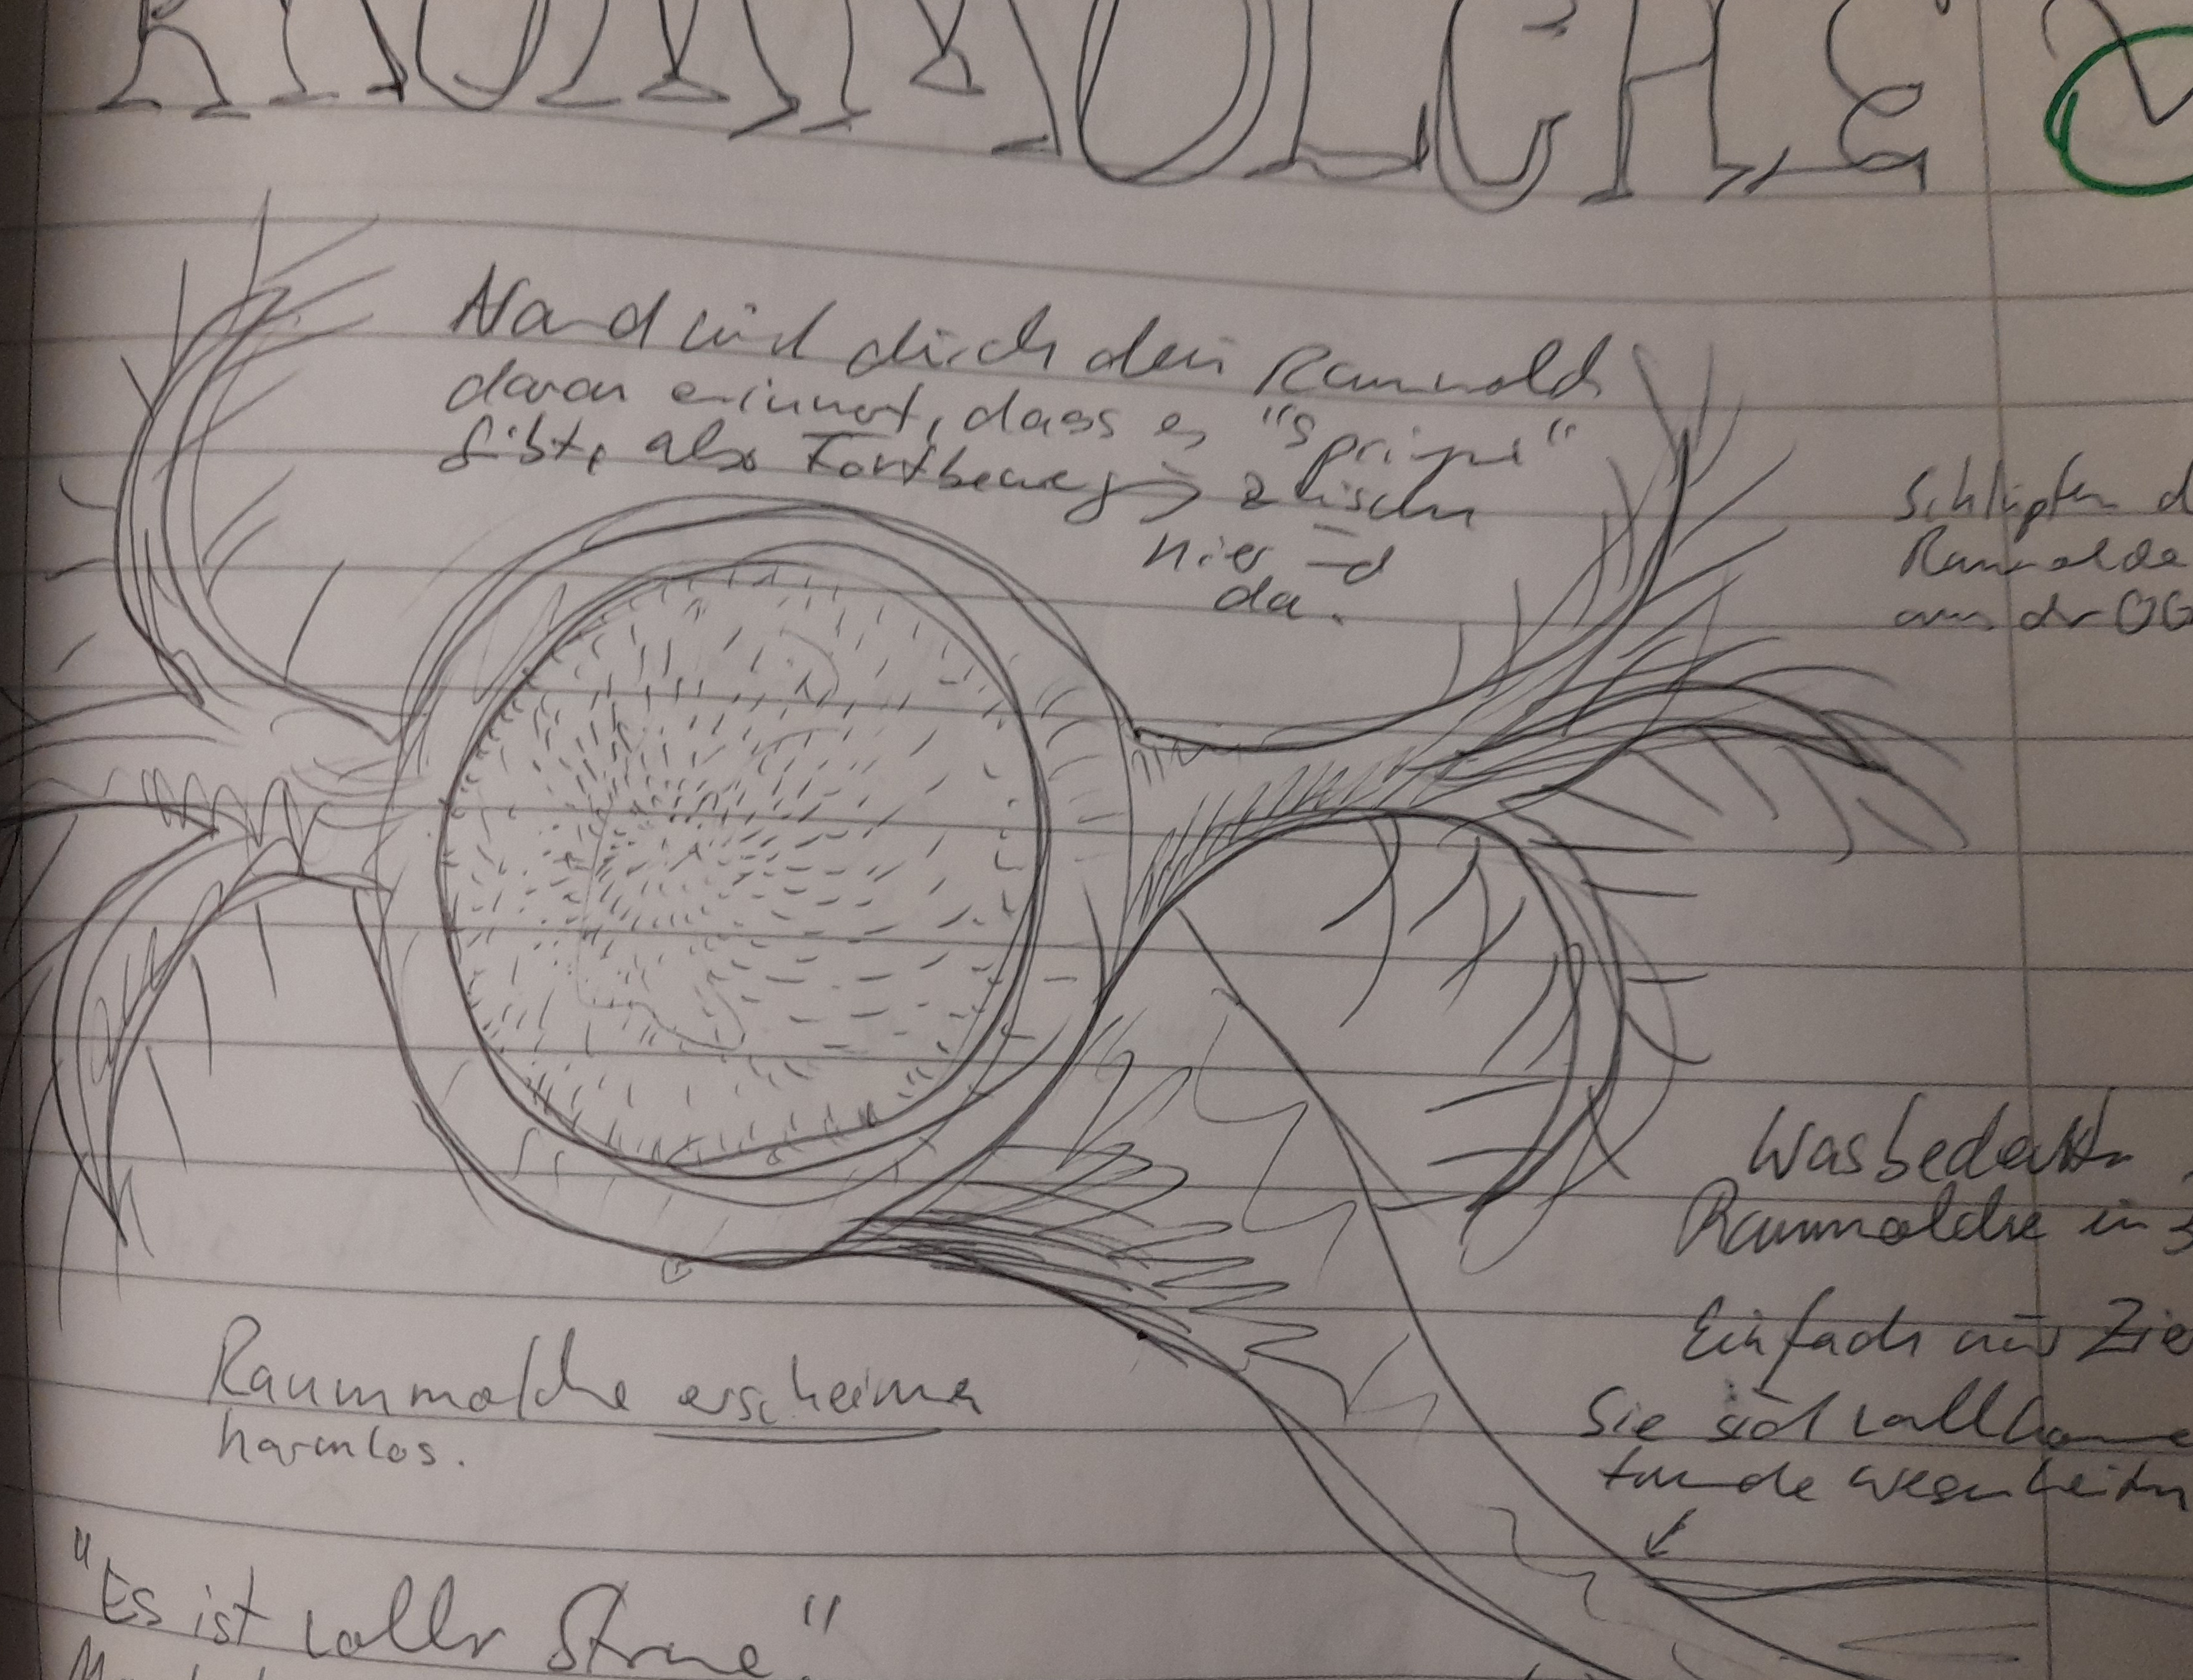 RAUMMOLCHE
wird durch den Raummolch
daran erinnert, dass es "Sprünge"
gibt, also Fortbewegung zwischen
hier und
da.
Schlüpfen d
Raummolche
aus der OG
Was bedeuten
Raummolche in
Einfach nur Zie
Sie sind vollkommen
Wesenheiten
Raummolche erscheinen
harmlos.
"Es ist voller Sterne"